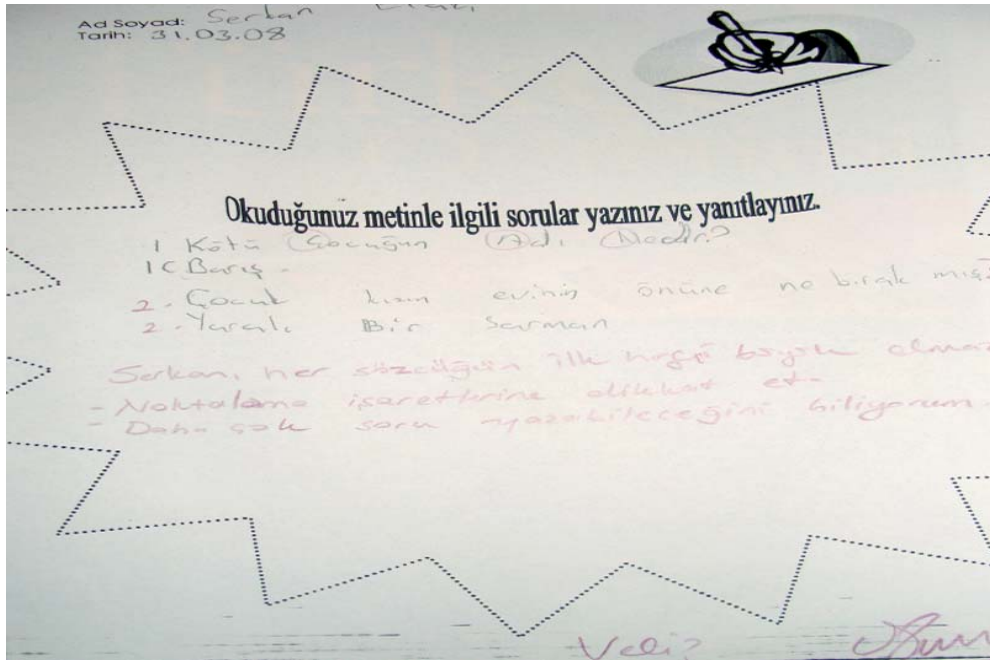 Ad Soyad: Serkan
Tarih: 31.03.08
Okuduğunuz metinle ilgili sorular yazınız ve yanıtlayınız.
1 Kötü Çocuğun Adı Nedir?
1 C Barış.
2. Çocuk kızın evinin önüne ne bırak mış?
2. Yaralı Bir Sarman
Serkan, her sözcüğün ilk harfi büyük olmaz
- Noktalama işaretlerine dikkat et.
- Daha çok soru yazabileceğini biliyorum.
Veli?